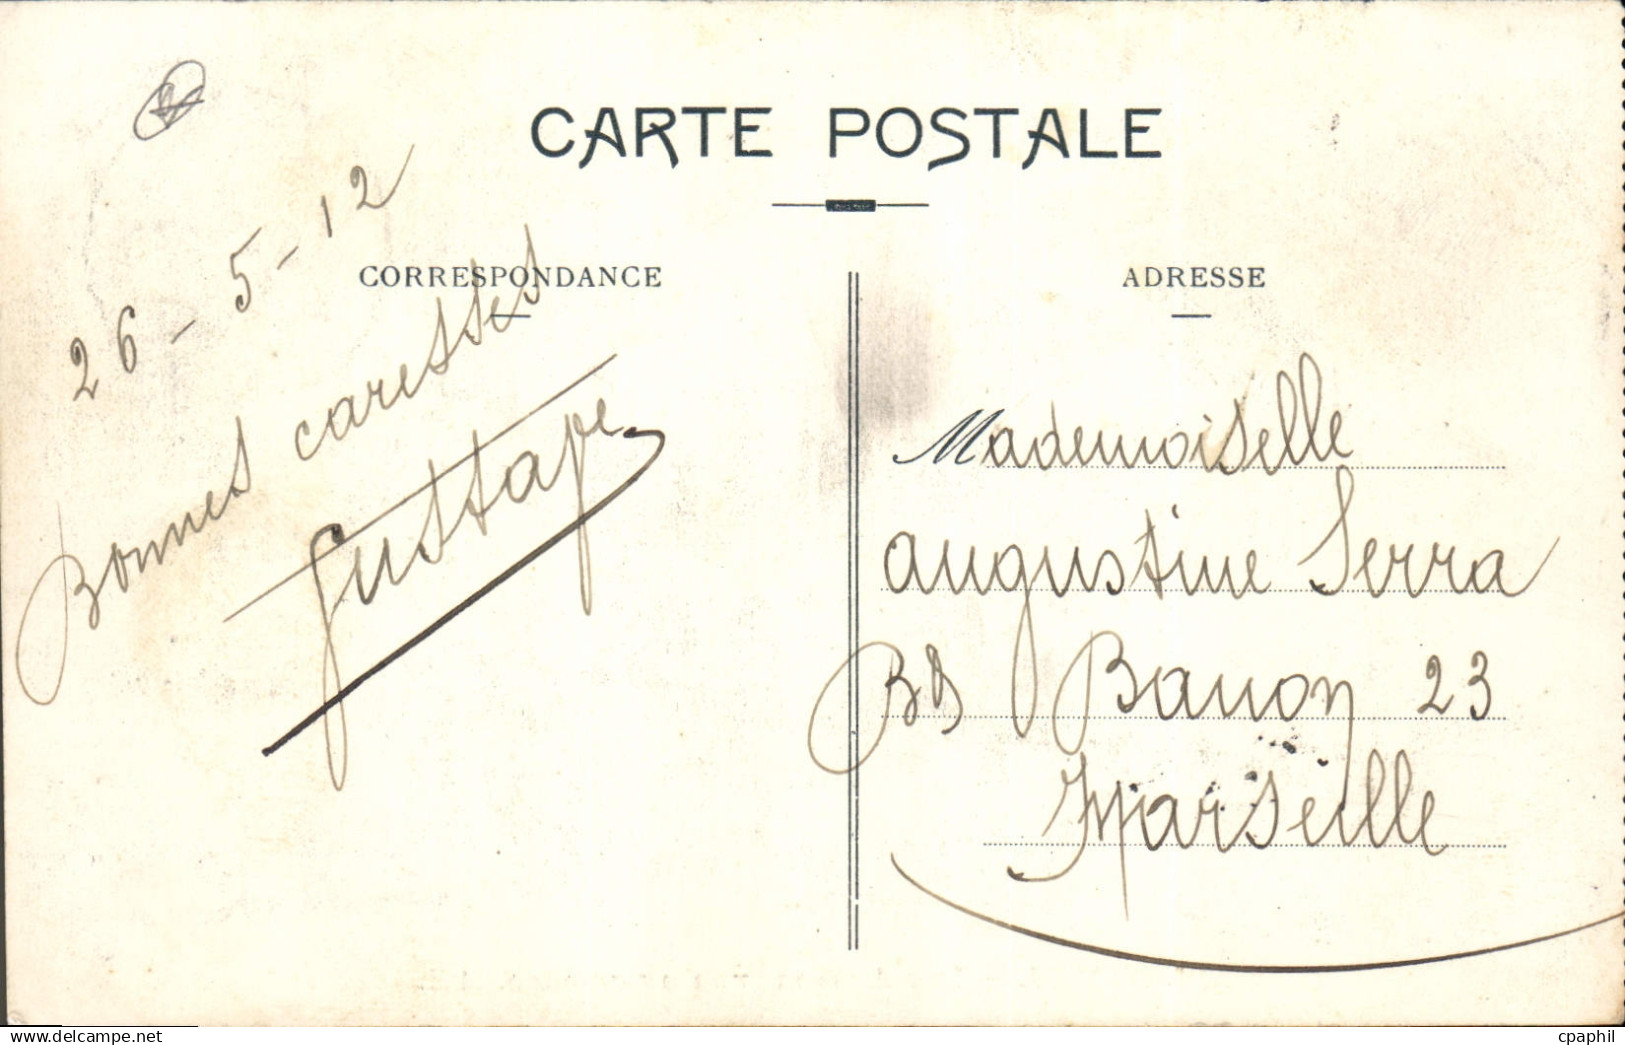 CARTE POSTALE
CORRESPONDANCE
26 - 5 - 12
Bonnes caresses
Gustave
ADRESSE
Mademoiselle
augustine Serra
Bd Banon 23
Marseille
www.delcampe.net
cpaphil